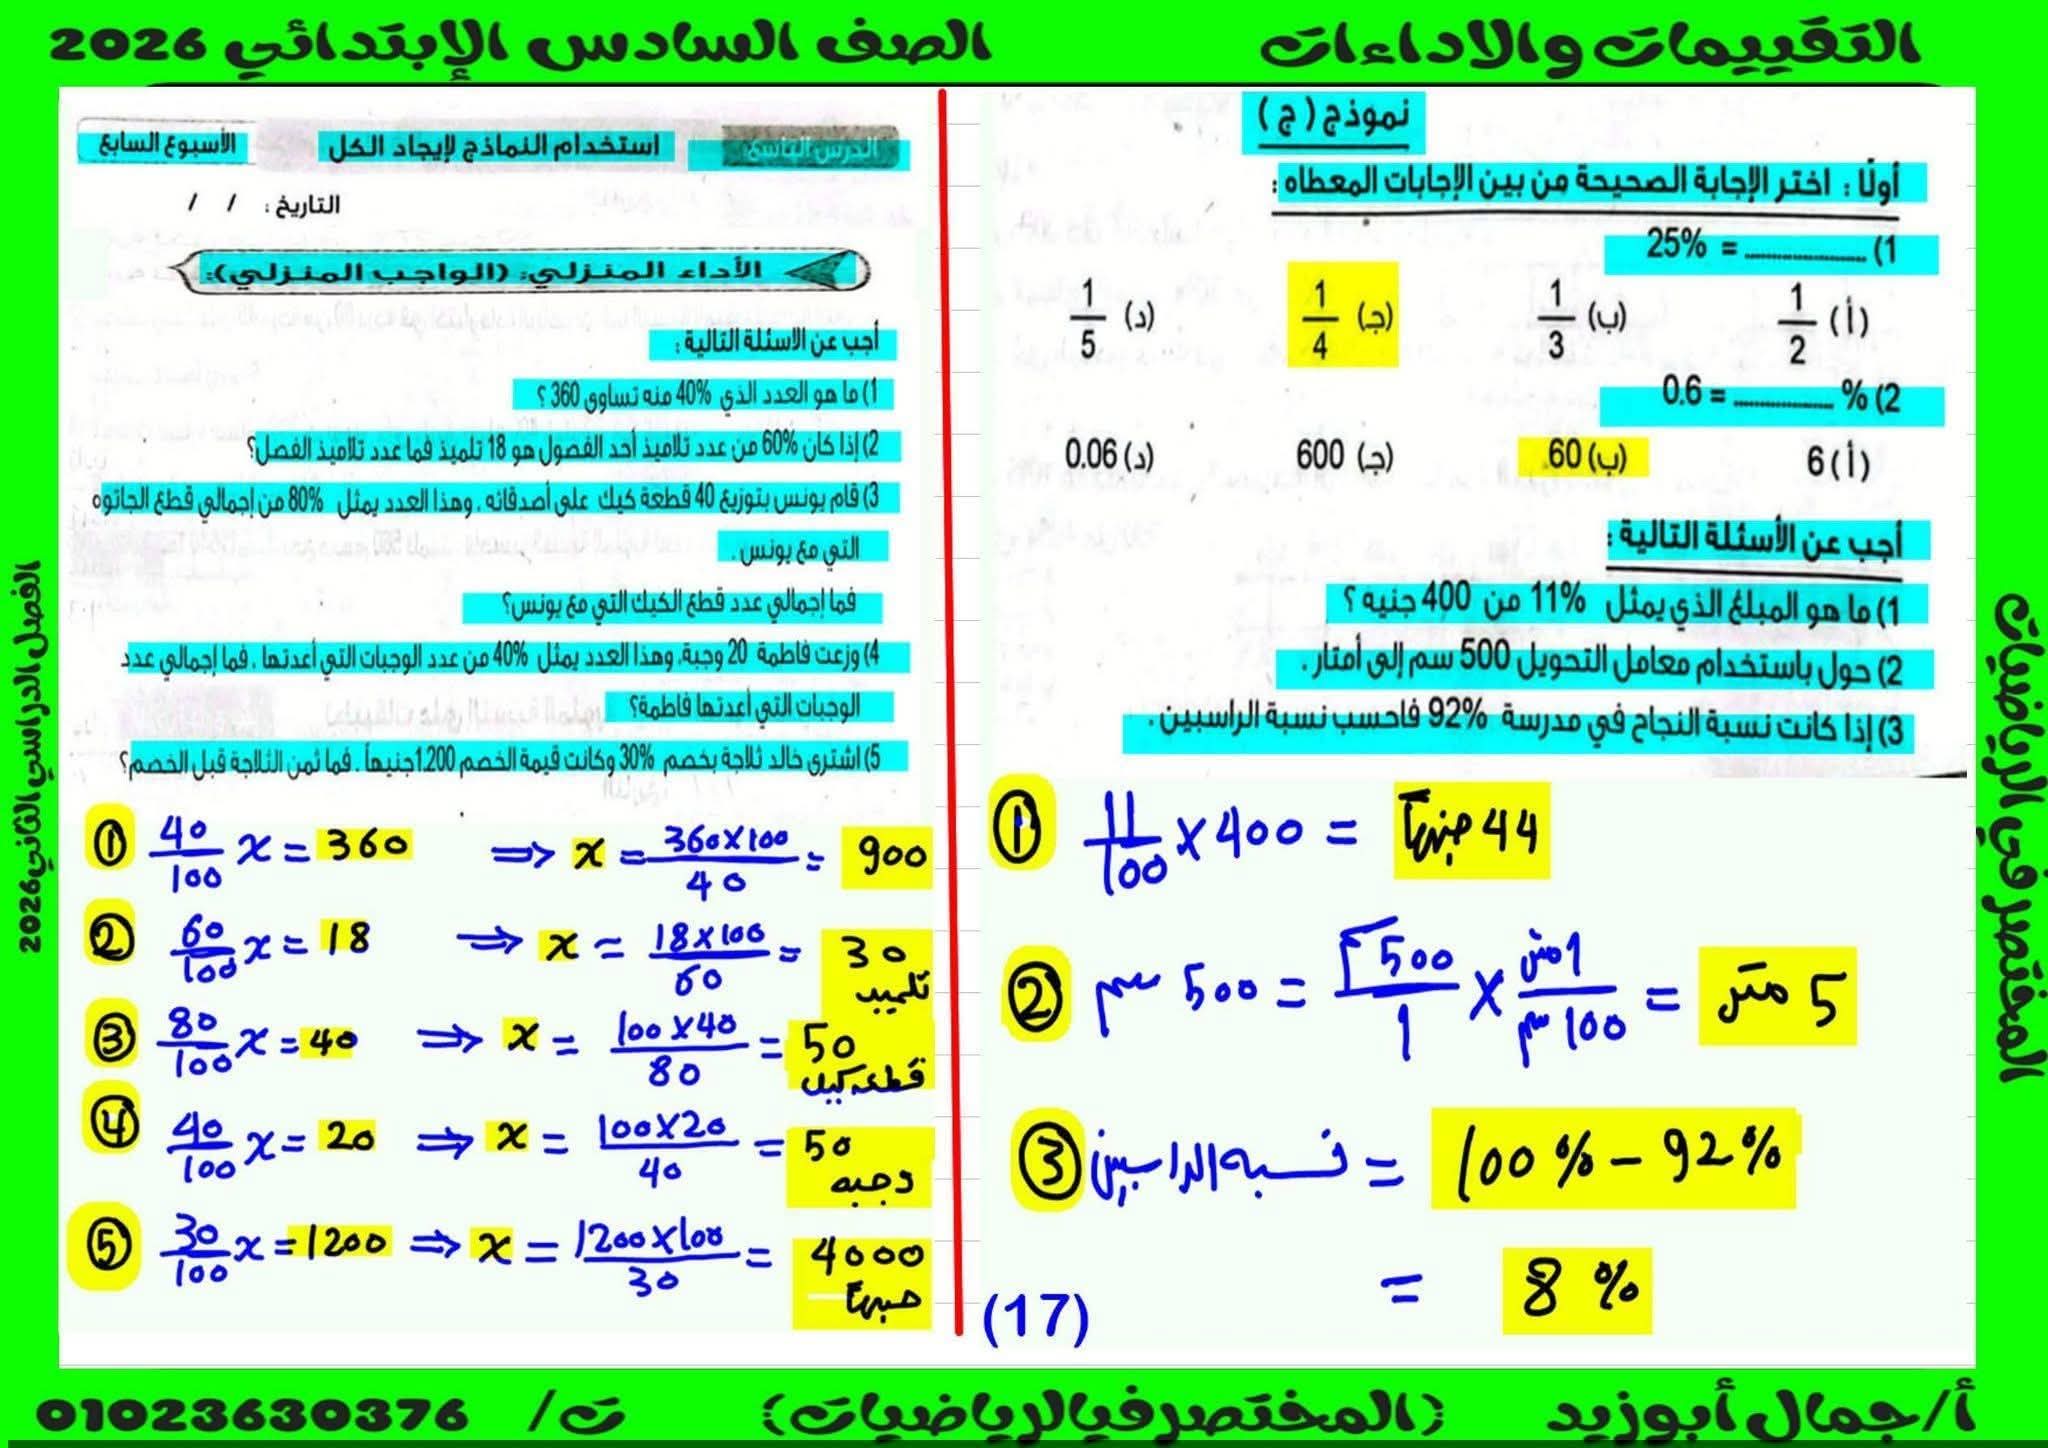 التقييمات والاداءات
الصف السادس الإبتدائي 2026
المختصر في الرياضيات
نموذج ( ج )
أولًا : اختر الإجابة الصحيحة من بين الإجابات المعطاه :
1) ............... = 25%
(أ) 1/2 (ب) 1/3 (ج) 1/4 (د) 1/5
2) % ............... = 0.6
(أ) 6 (ب) 60 (ج) 600 (د) 0.06
أجب عن الأسئلة التالية :
1) ما هو المبلغ الذي يمثل 11% من 400 جنيه ؟
2) حول باستخدام معامل التحويل 500 سم إلى أمتار .
3) إذا كانت نسبة النجاح في مدرسة 92% فاحسب نسبة الراسبين .
① 11/100 × 400 = 44 جنيهاً
② 500 سم = 500/1 × 1 متر/100 سم = 5 متر
③ نسبة الراسبين = 100 % - 92 %
= 8 %
(17)
الدرس التاسع: استخدام النماذج لإيجاد الكل الأسبوع السابع
التاريخ : / /
الأداء المنزلي: (الواجب المنزلي):
أجب عن الاسئلة التالية :
1) ما هو العدد الذي 40% منه تساوى 360 ؟
2) إذا كان 60% من عدد تلاميذ أحد الفصول هو 18 تلميذ فما عدد تلاميذ الفصل؟
3) قام يونس بتوزيع 40 قطعة كيك على أصدقائه ، وهذا العدد يمثل 80% من إجمالي قطع الجاتوه
التي مع يونس .
فما إجمالي عدد قطع الكيك التي مع يونس؟
4) وزعت فاطمة 20 وجبة، وهذا العدد يمثل 40% من عدد الوجبات التي أعدتها ، فما إجمالي عدد
الوجبات التي أعدتها فاطمة؟
5) اشترى خالد ثلاجة بخصم 30% وكانت قيمة الخصم 1.200جنيهاً . فما ثمن الثلاجة قبل الخصم؟
① 40/100 x = 360 ⇒ x = 360×100/40 = 900
② 60/100 x = 18 ⇒ x = 18×100/60 = 30
تلميذ
③ 80/100 x = 40 ⇒ x = 100×40/80 = 50
قطعه كيك
④ 40/100 x = 20 ⇒ x = 100×20/40 = 50
وجبه
⑤ 30/100 x = 1200 ⇒ x = 1200×100/30 = 4000
جنيهاً
الفصل الدراسي الثاني 2026
أ/جمال أبوزيد (المختصر في الرياضيات) ت/ 01023630376